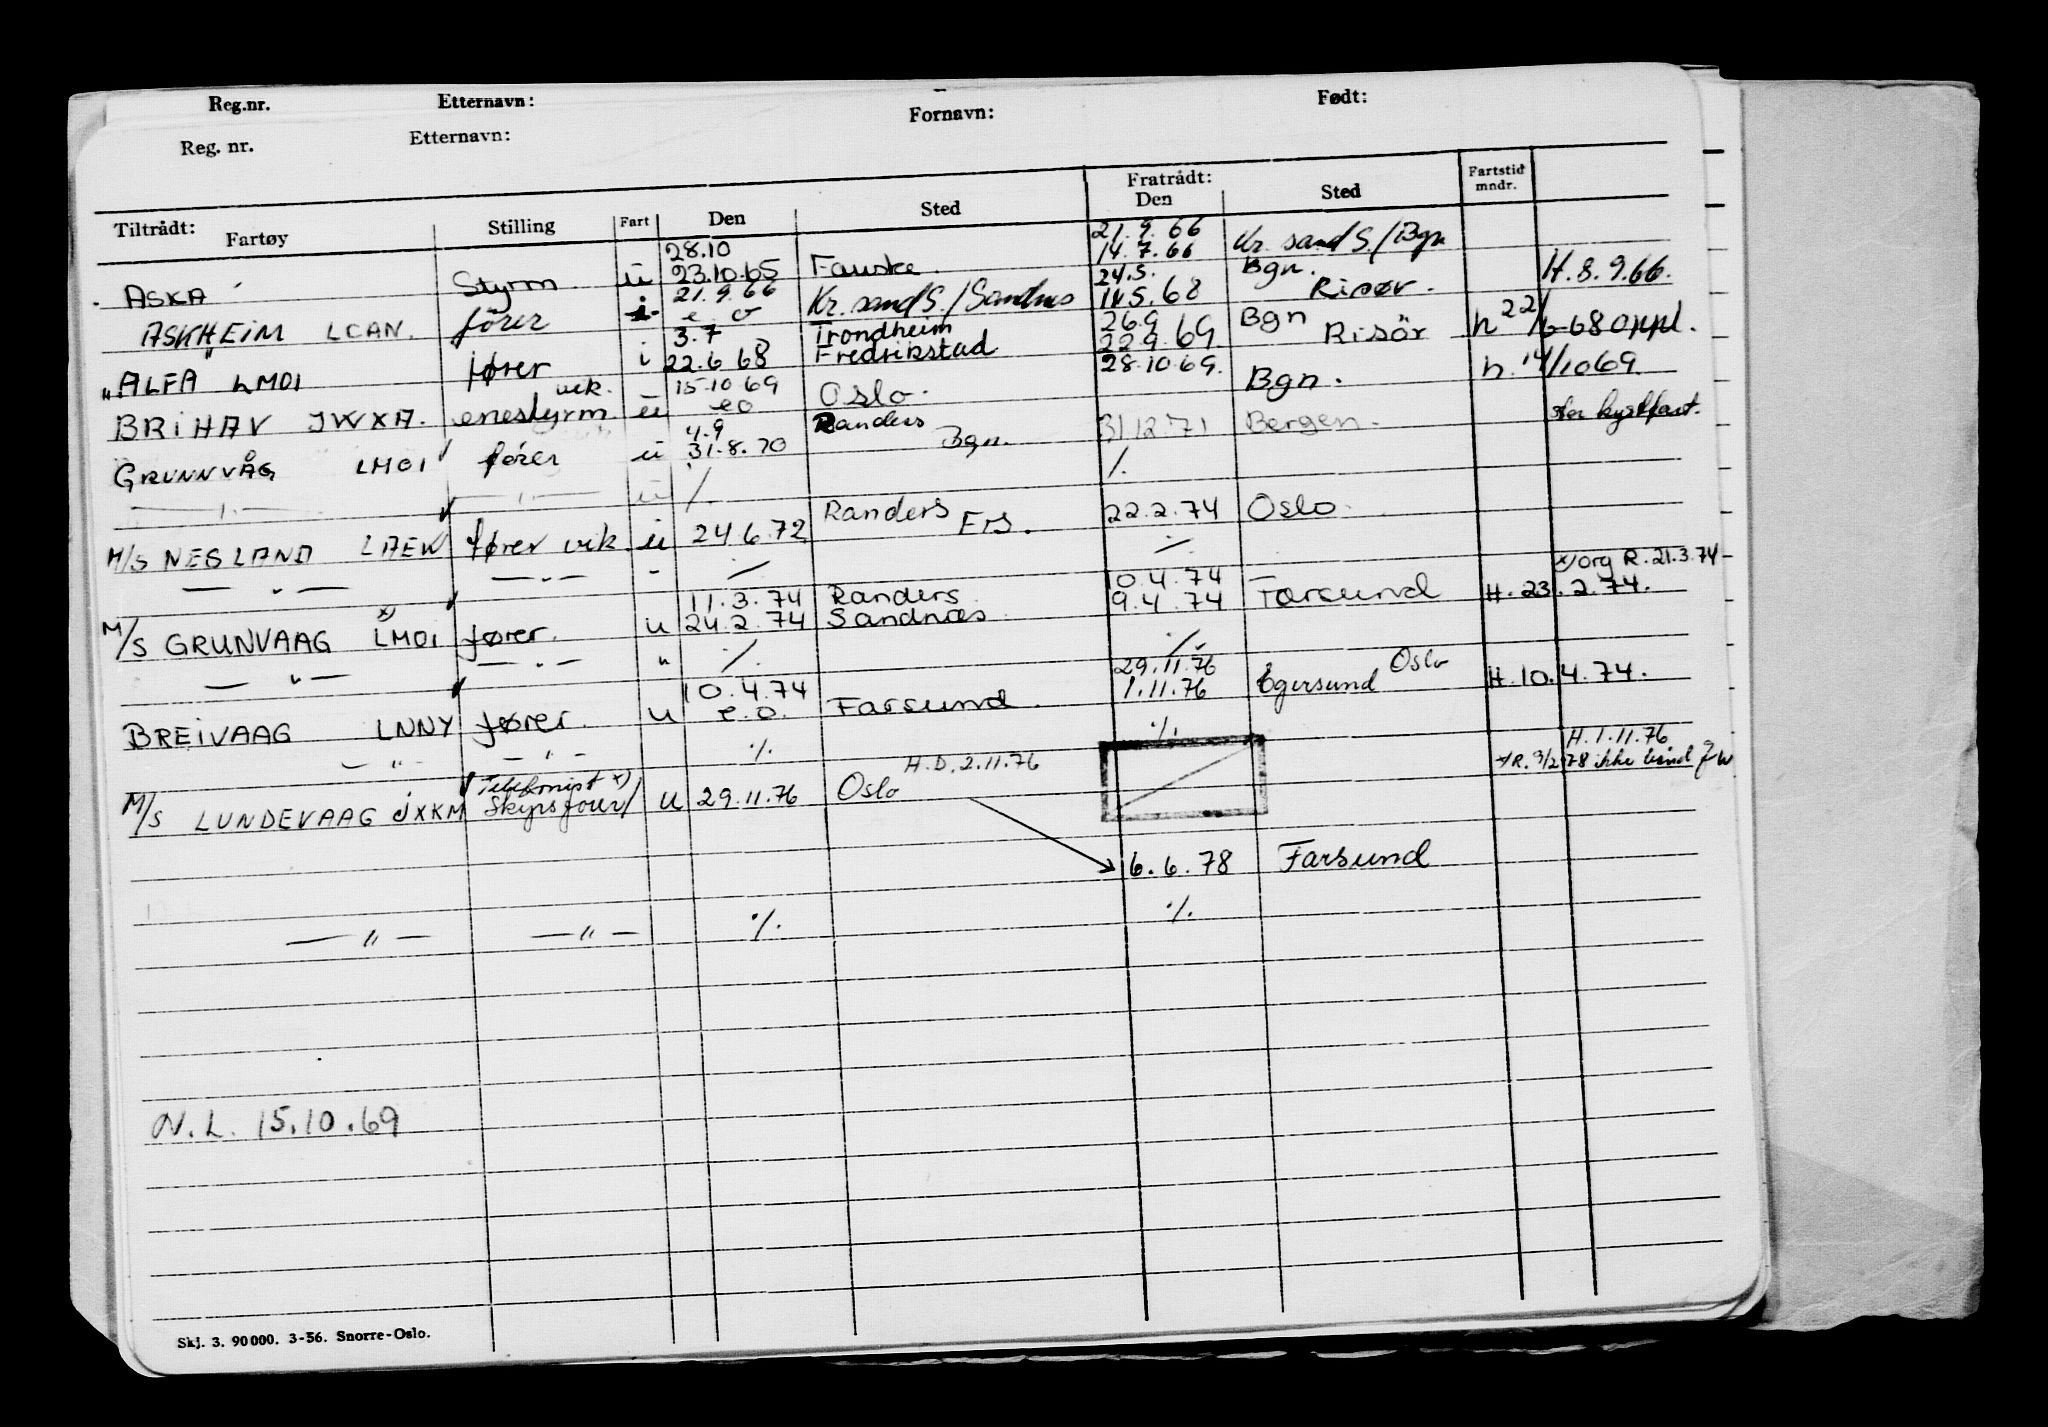 Reg.nr. Etternavn: Fornavn: Født:
Reg. nr. Etternavn:
Tiltrådt: Fartøy Stilling Fart Den Sted Fratrådt: Den Sted Fartstid mndr.
28.10 21.9.66 Kr. sand S./Bgn
ASKA Styrm ü 23.10.65 Fauske. 14.7.66 Bgn. H.8.9.66.
21.9.66 24.5. Risør.
ASKHEIM LCAN. fører i e o Kr. sand S./Sandnes 14.5.68 Bgn
3.7 Trondheim 26.9 Risör h 22/6-68 oppl.
"ALFA LMOI fører i 22.6 68 Fredrikstad 22.9.69
vik. 15.10 69 28.10.69. Bgn. h. 14/10 69
BRIHAV JWXA. enestyrm ü eo Oslo.
4.9 Randers 31.12.71 Bergen. stor kystfart.
GRUNNVÅG LMOI fører ü 31.8.70 Bgn.
— " — — " — ü ./. ./.
M/S NESLAND LAEW fører vik. ü 24.6.72 Randers Ers. 22.2.74 Oslo.
— " — — " — - ./. ./.
x) 11.3.74 Randers 10.4.74 x) org R. 21.3.74
M/S GRUNVAAG LMOI fører. u 24.2.74 Sandnæs 9.4.74 Farsund H. 23.2.74.
— " — — " — " ./. ./.
10.4.74 29.11.76 Oslo
BREIVAAG LNNY fører. u e.o. Farsund. 1.11.76 Egersund H. 10.4.74.
— " — — " — ./. ./.
Telefonist x) H.D. 2.11.76 H. 1.11.76
M/S LUNDEVAAG JXKM u 29.11.76 Oslo
6.6.78 Farsund
— " — — " — ./. ./.
N.L. 15.10.69
Skj. 3. 90 000. 3-56. Snorre-Oslo.